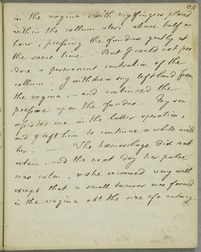 in the vagina with my fingers placed
within the collum uteri above half an
hour, pressing the fundus gently at
the same time. But I could not pro
duce a permanent contraction of the
collum. I withdrew my left hand from
the vagina, and continued the
pressure upon the fundus. My son
assisted me in the latter operation,
and I left him to continue a while with
her. The hæmorrhage did not
return, and the next day her pulse
was calm, & she recovered very well
except that a small tumour was formed
in the vagina abt the size of a nutmeg